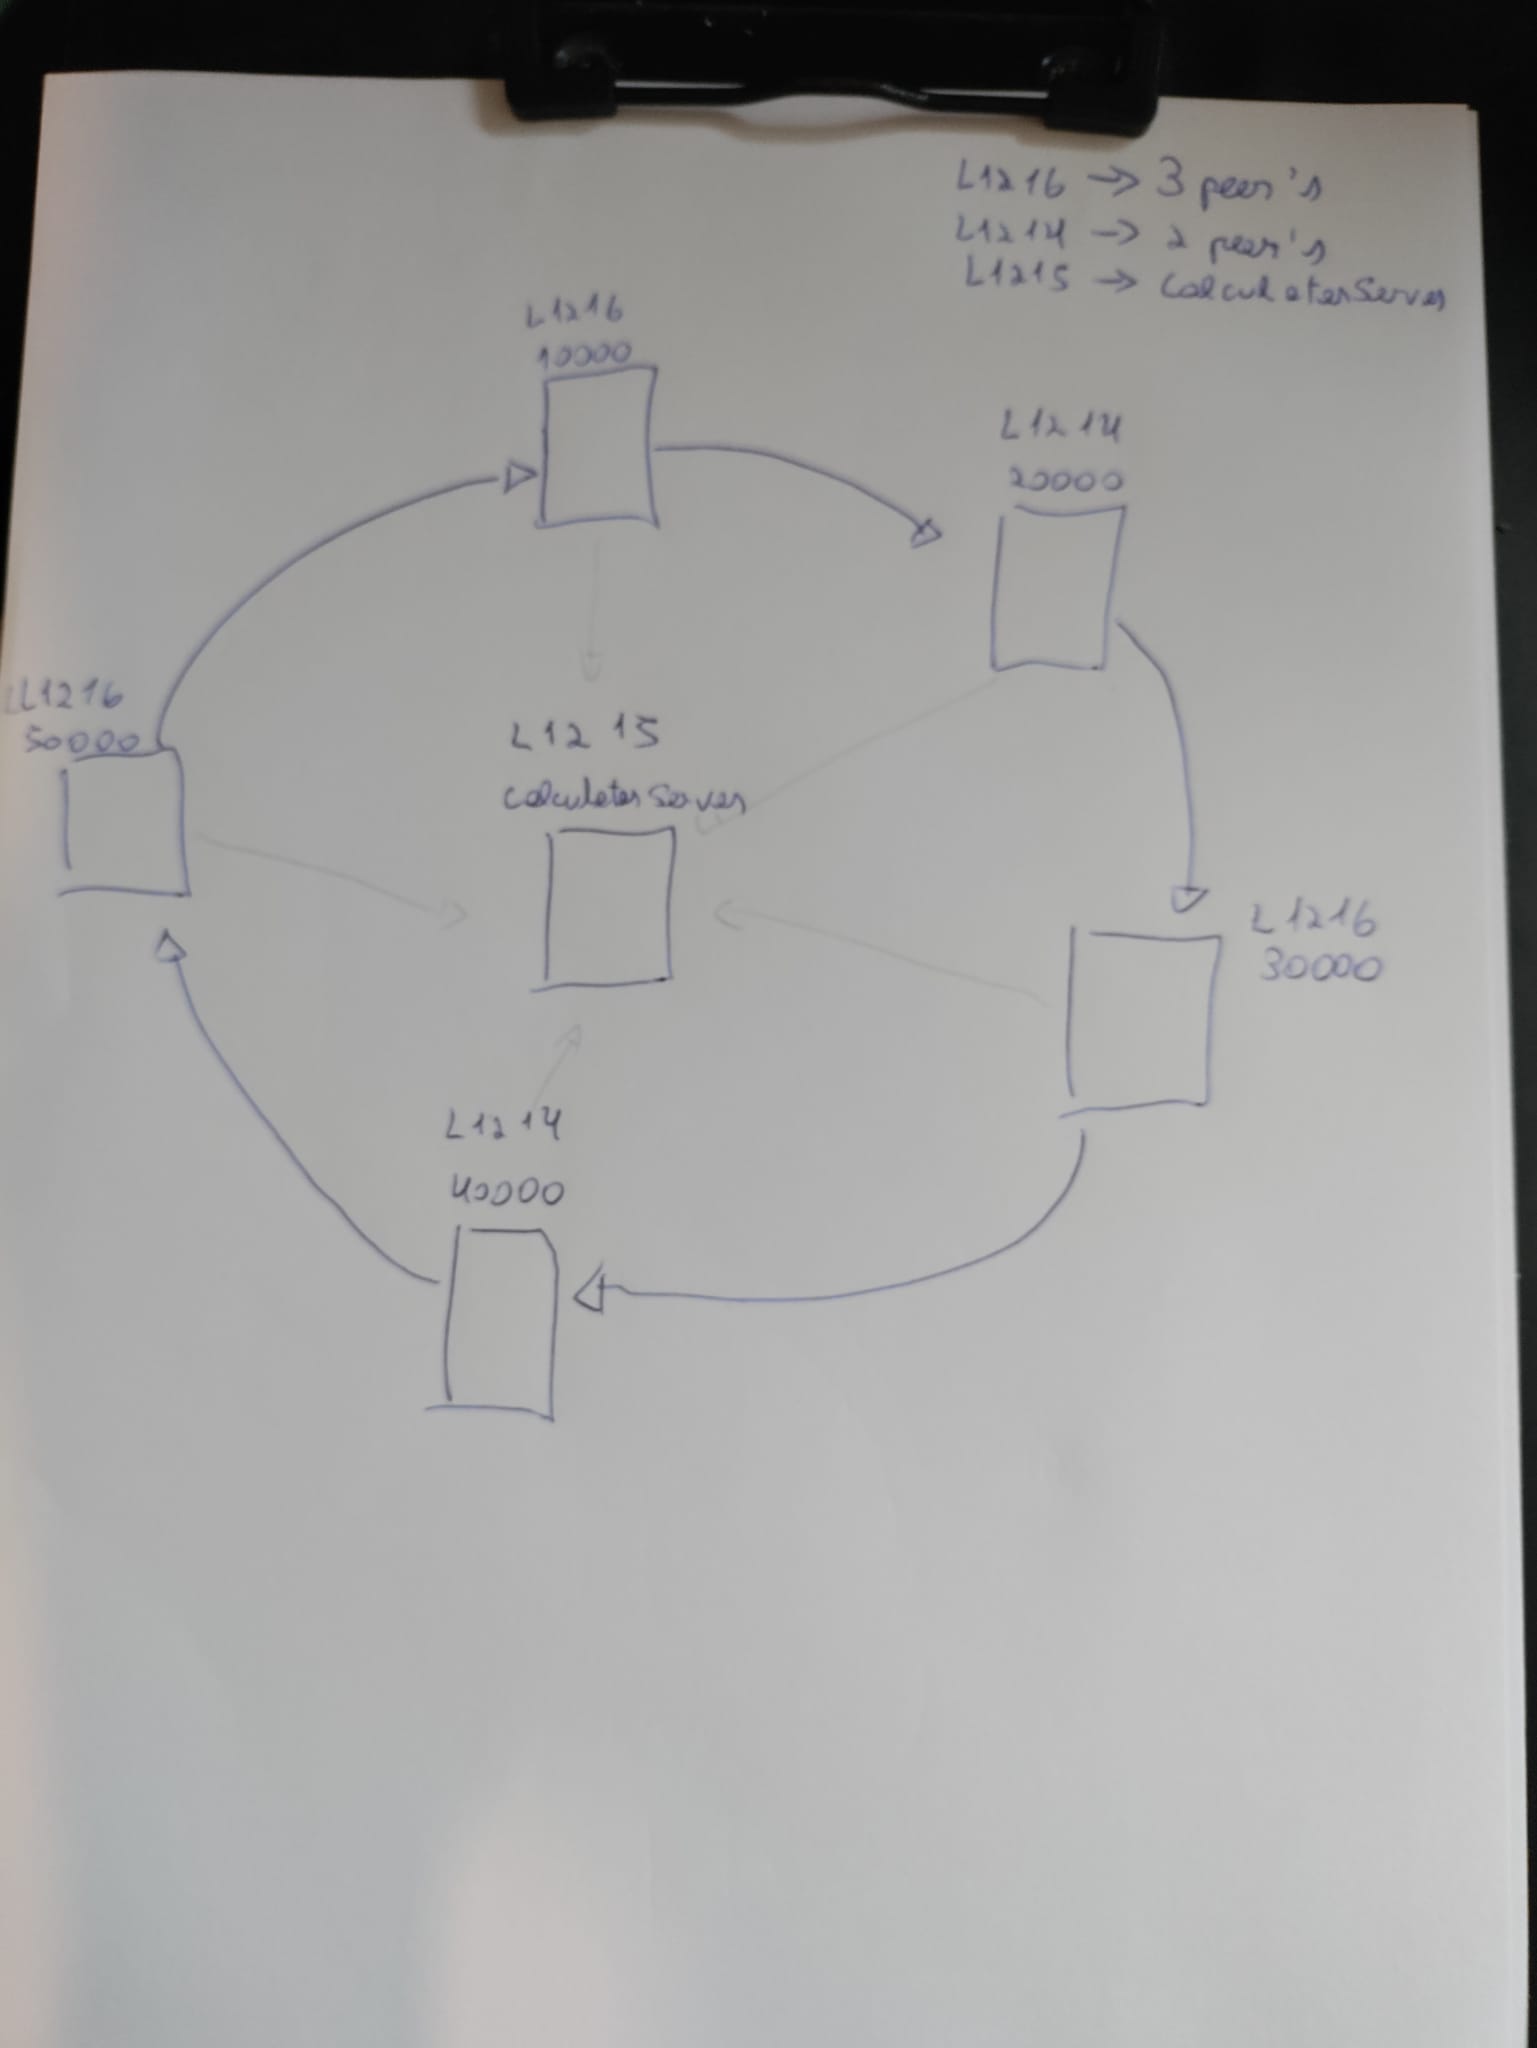 L1216 → 3 peer's
L1214 → 2 peer's
L1215 → CalculatorServer
L1216
10000
L1214
20000
L1216
50000
L1215
CalculatorServer
L1216
30000
L1214
40000